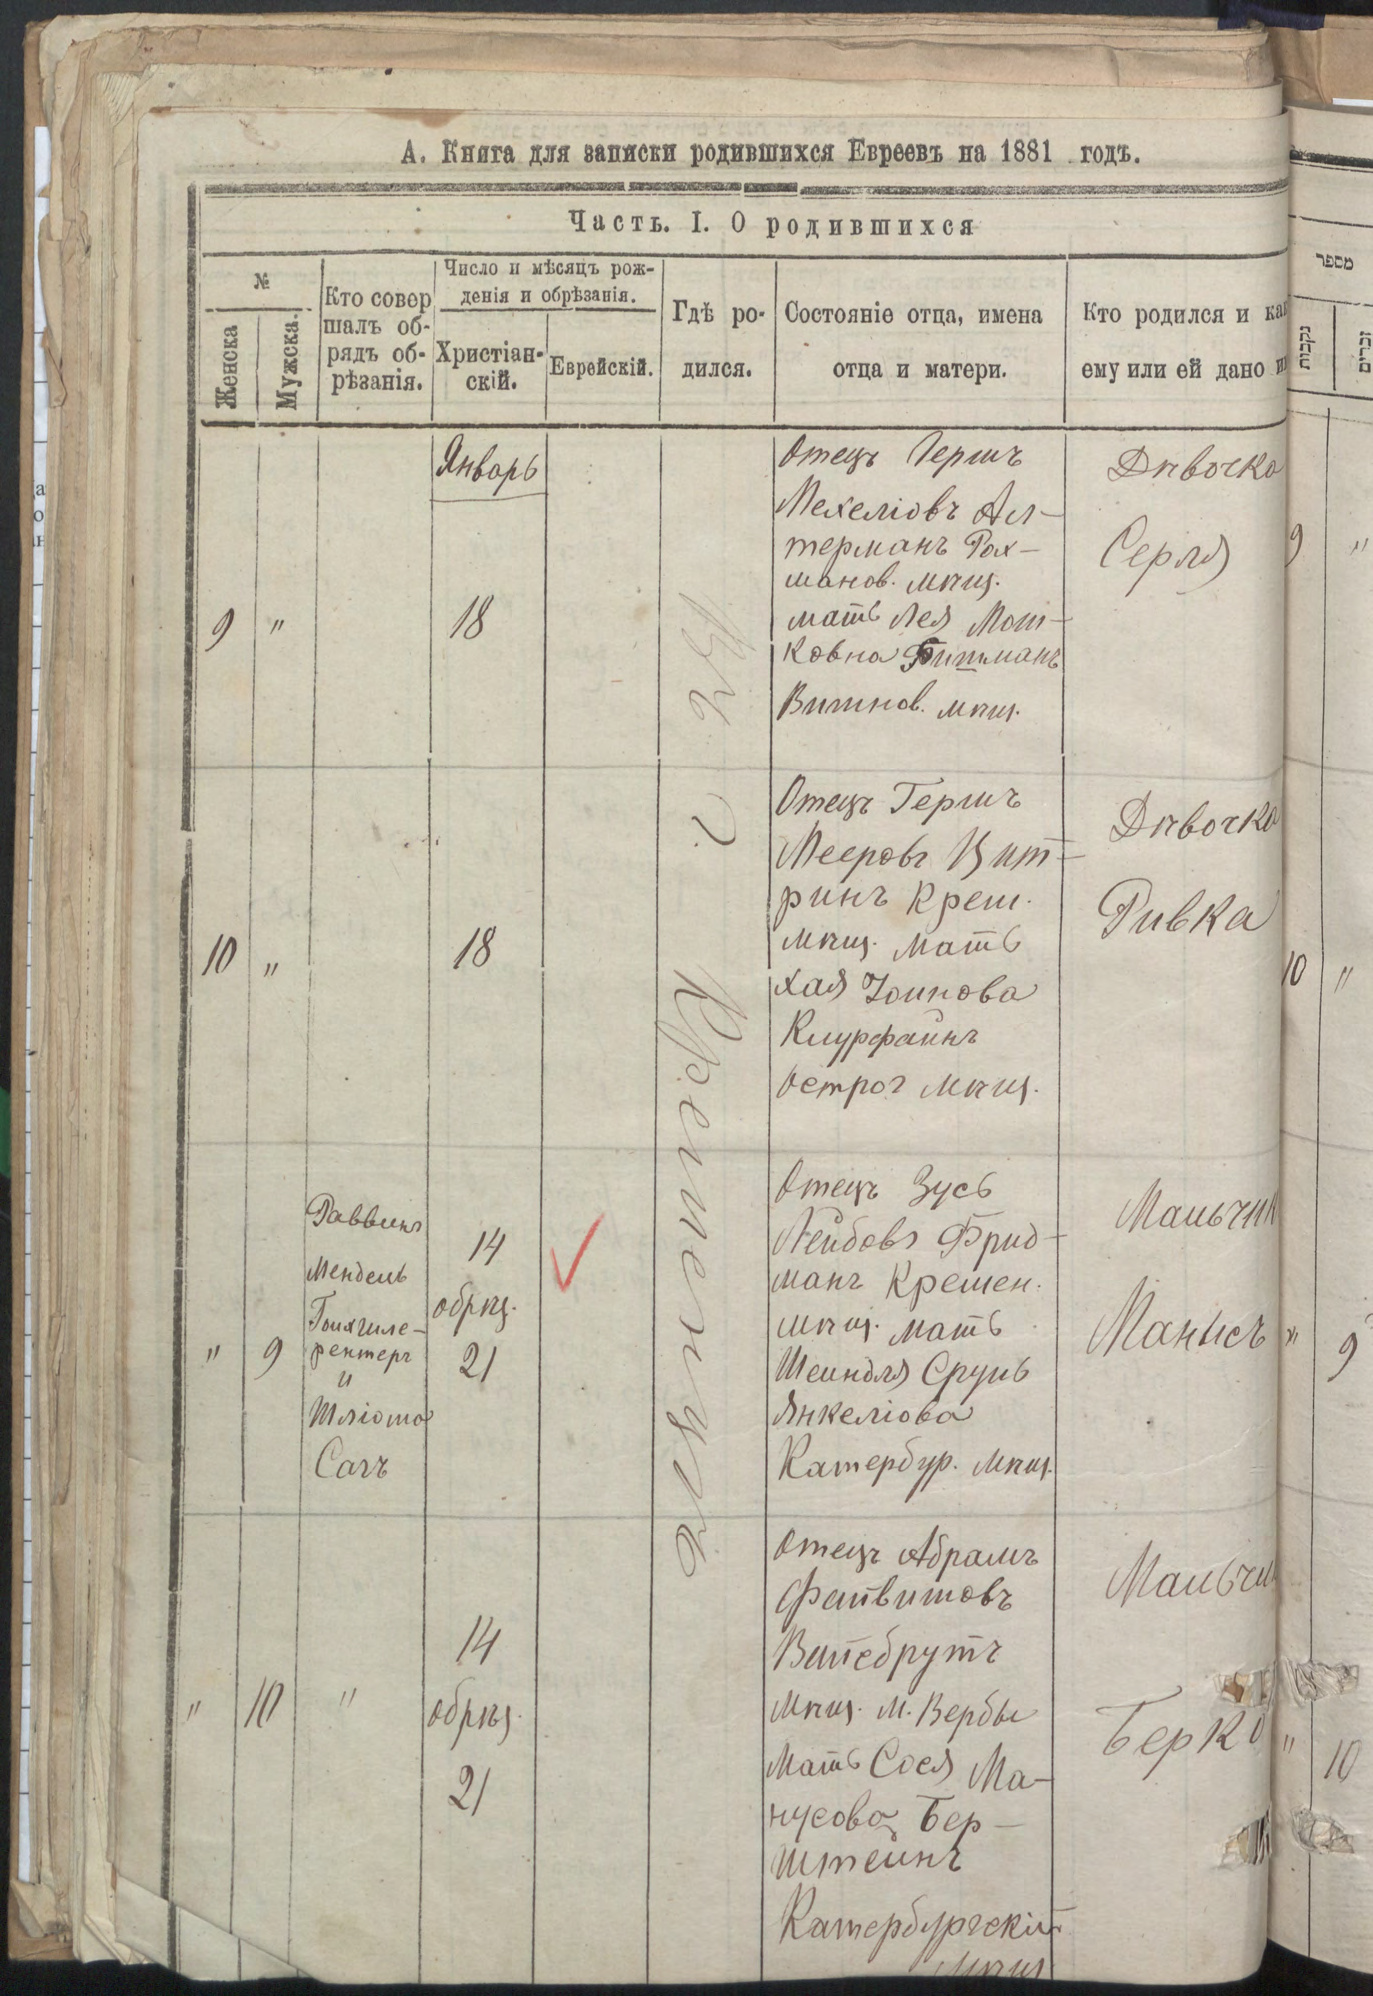 А. Книга для записки родившихся Евреевъ на 1881 годъ.
Часть. I. О родившихся
№
Женска
Мужска.
Кто совер
шалъ об-
рядъ об-
рѣзанія.
Число и мѣсяцъ рож-
денія и обрѣзанія.
Христіан-
скій.
Еврейскій.
Гдѣ ро-
дился.
Состояніе отца, имена
отца и матери.
Кто родился и как
ему или ей дано и
מספר
נקבות
זכרים
Январь
9 "
18
Отецъ Гершъ
Мехеліовъ Ал-
терманъ Рах-
манов. мѣщ.
мать Лея Мош-
ковна
Вишнов. мѣщ.
Дѣвочка
Серля
9 "
Въ г. Кременцѣ
10 "
18
Отецъ Гершъ
Мееровъ Цит-
ринъ Крем.
мѣщ. мать
Хая
Клурфайнъ
Острог мѣщ.
Дѣвочка
Ривка
10 "
" 9
Раввинъ
Мендель
и
Шліома
14
обрѣз.
21
Отецъ Зусь
Лейбовъ Фрид-
манъ Кремен.
мѣщ. мать
Шейндля Сруль
Янкеліова
Катербур. мѣщ.
Мальчик
Манисъ
" 9
" 10
"
14
обрѣз.
21
Отецъ Абрамъ
мѣщ. м. Вербы
Мать Сося Ма-
нусова Бер-
штейнъ
Катербургскій
мѣщ
Мальчи
Берко
" 10